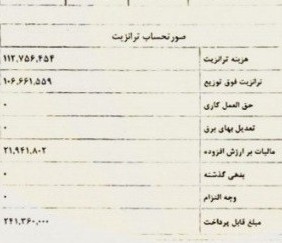 صورتحساب ترانزیت
هزینه ترانزیت ۱۱۲,۷۵۶,۴۵۴
ترانزیت فوق توزیع ۱۰۶,۶۶۱,۵۵۹
حق العمل کاری ۰
تعدیل بهای برق ۰
مالیات بر ارزش افزوده ۲۱,۹۴۱,۸۰۲
بدهی گذشته ۰
وجه التزام ۰
مبلغ قابل پرداخت ۲۴۱,۳۶۰,۰۰۰